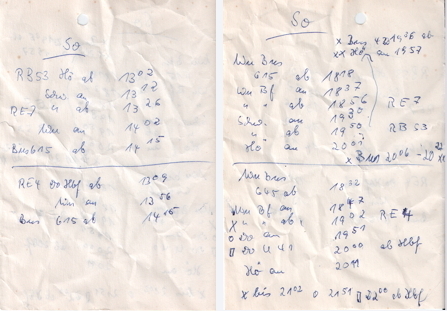 So
RB53 Hö ab 13 02
Schw. an 13 12
RE7 " ab 13 26
Un an 14 02
Bus 615 ab 14 15
RE4 DO Hbf ab 13 09
Un an 13 56
Bus 615 ab 14 15
So
x Bus 1936 ab
xx Hö an 1957
Un Bus
615 ab 1818
Un Bf an 1837
" " ab 1856 RE7
Schw. an 1930
" ab 1950 RB53
Hö an 2001
x Bus 2006 - 20 22
Un Bus
615 ab 1832
Un Bf an 1847
x " " ab 1902 RE4
o Do an 1951
Do U 2000 ab Hbf
Hö an 2011
x bis 2102 o 2151 2200 ab Hbf